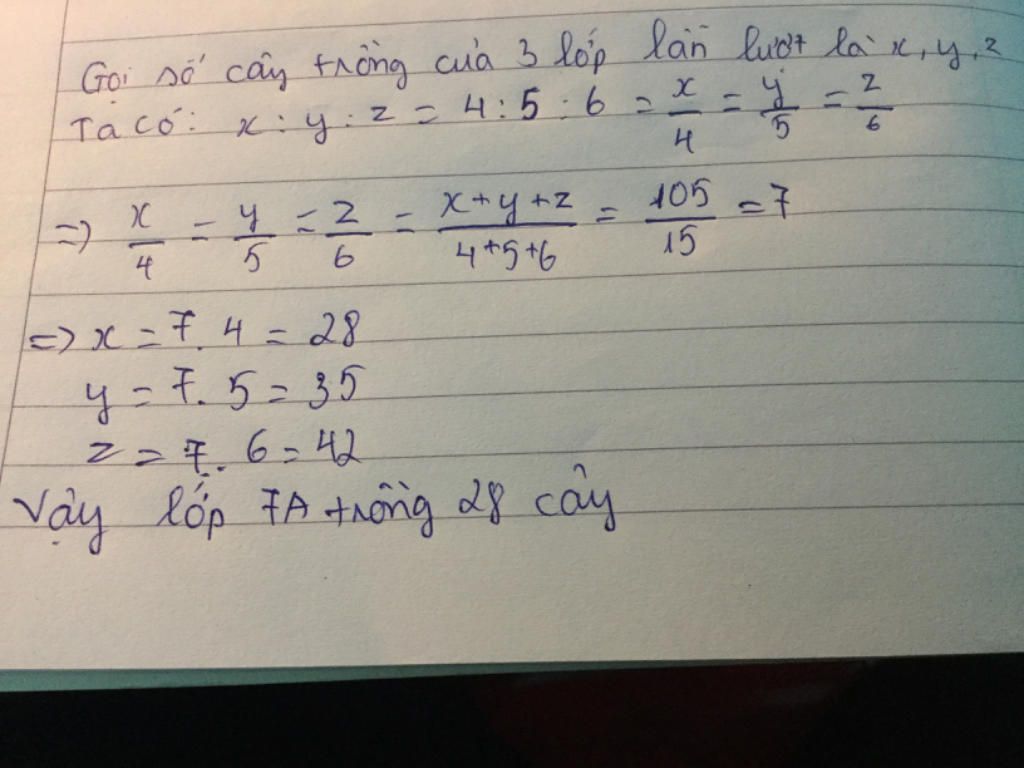 Gọi số cây trồng của 3 lớp lần lượt là x, y, z
Ta có: x : y : z = 4 : 5 : 6 = x/4 = y/5 = z/6
=> x/4 = y/5 = z/6 = x+y+z/4+5+6 = 105/15 = 7
=> x = 7. 4 = 28
y = 7. 5 = 35
z = 7. 6 = 42
Vậy lớp 7A trồng 28 cây